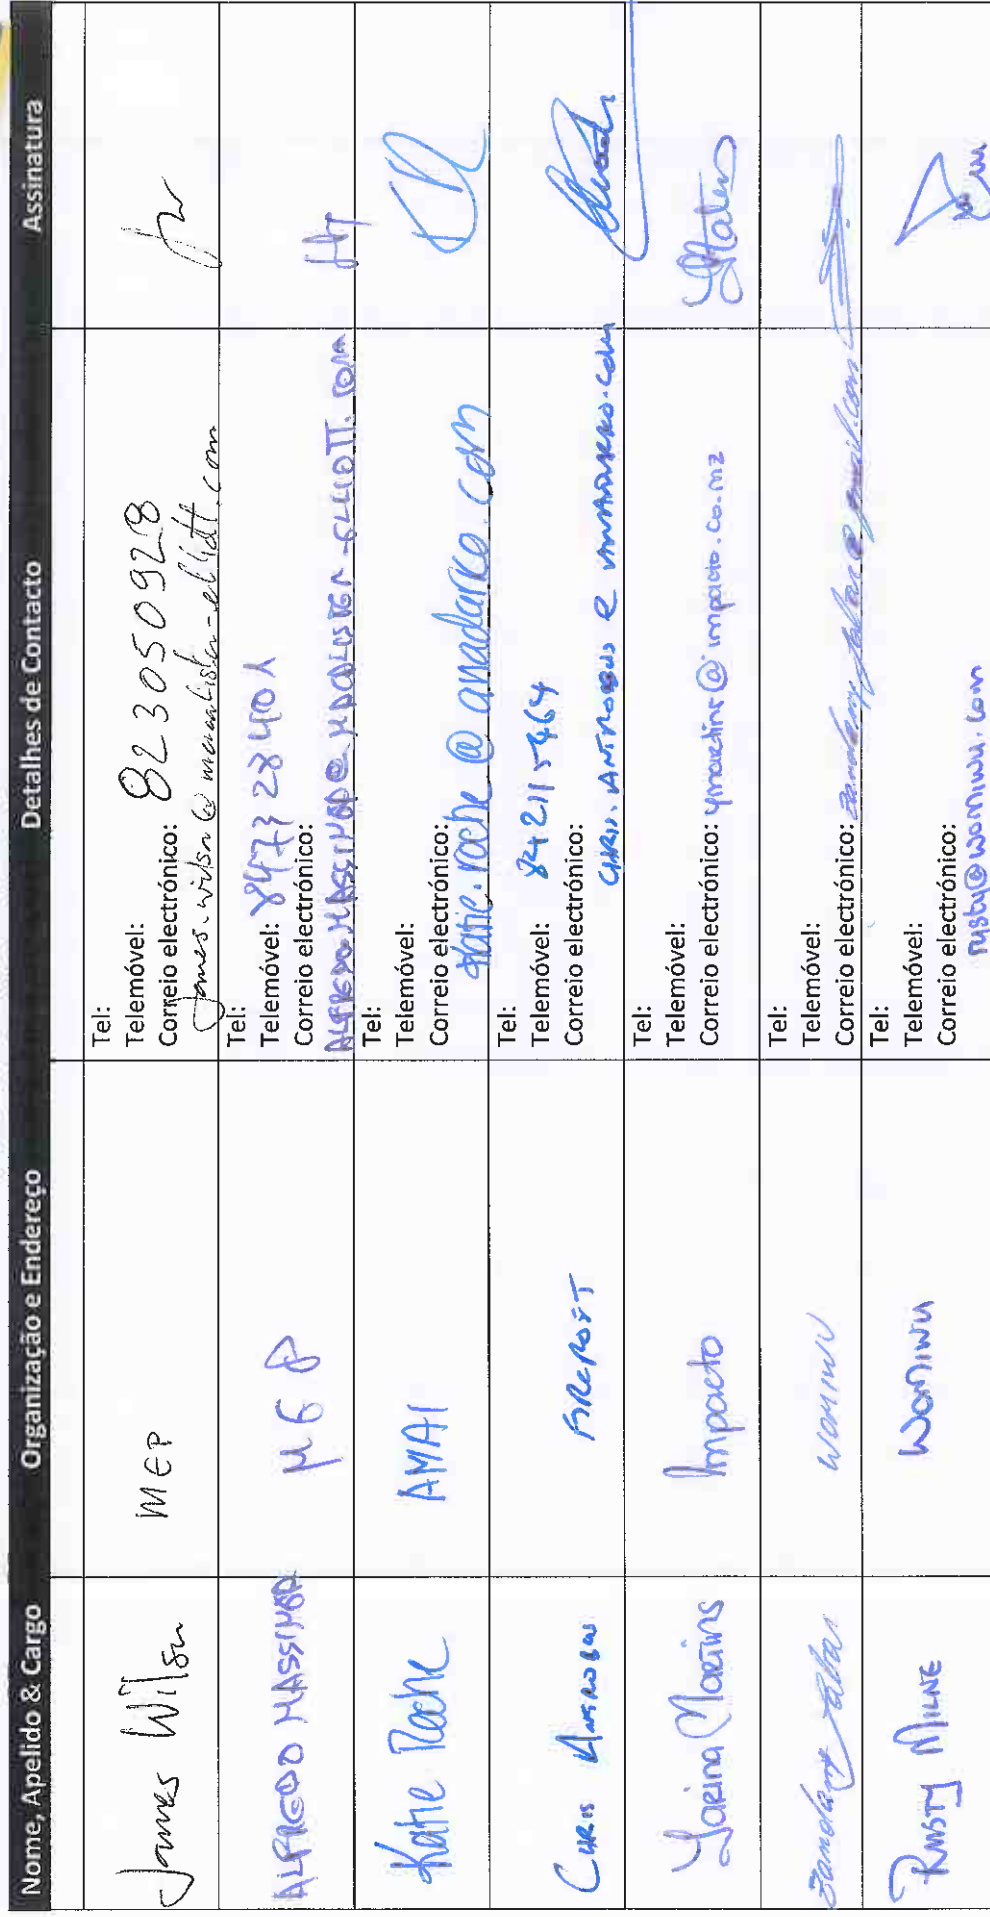 Nome, Apelido & Cargo Organização e Endereço Detalhes de Contacto Assinatura
James Wilson MEP
Tel:
Telemóvel: 823050928
Correio electrónico:
james.wilson@mcalister-elliott.com
ALFREDO MASSINGA
Tel:
Telemóvel: 847328401
Correio electrónico:
Katie Roche AMA1
Tel:
Telemóvel:
Correio electrónico:
katie.roche@anadarko.com
CHRIS ANTROBUS
Tel:
Telemóvel: 842115464
Correio electrónico:
CHRIS.ANTROBUS@ANADARKO.COM
Yarina Marins Impacto
Tel:
Telemóvel:
Correio electrónico: ymartins@impacto.co.mz
WOMINU
Tel:
Telemóvel:
Correio electrónico:
RUSTY MILNE WOMINU
Tel:
Telemóvel:
Correio electrónico:
rusty@wominu.com